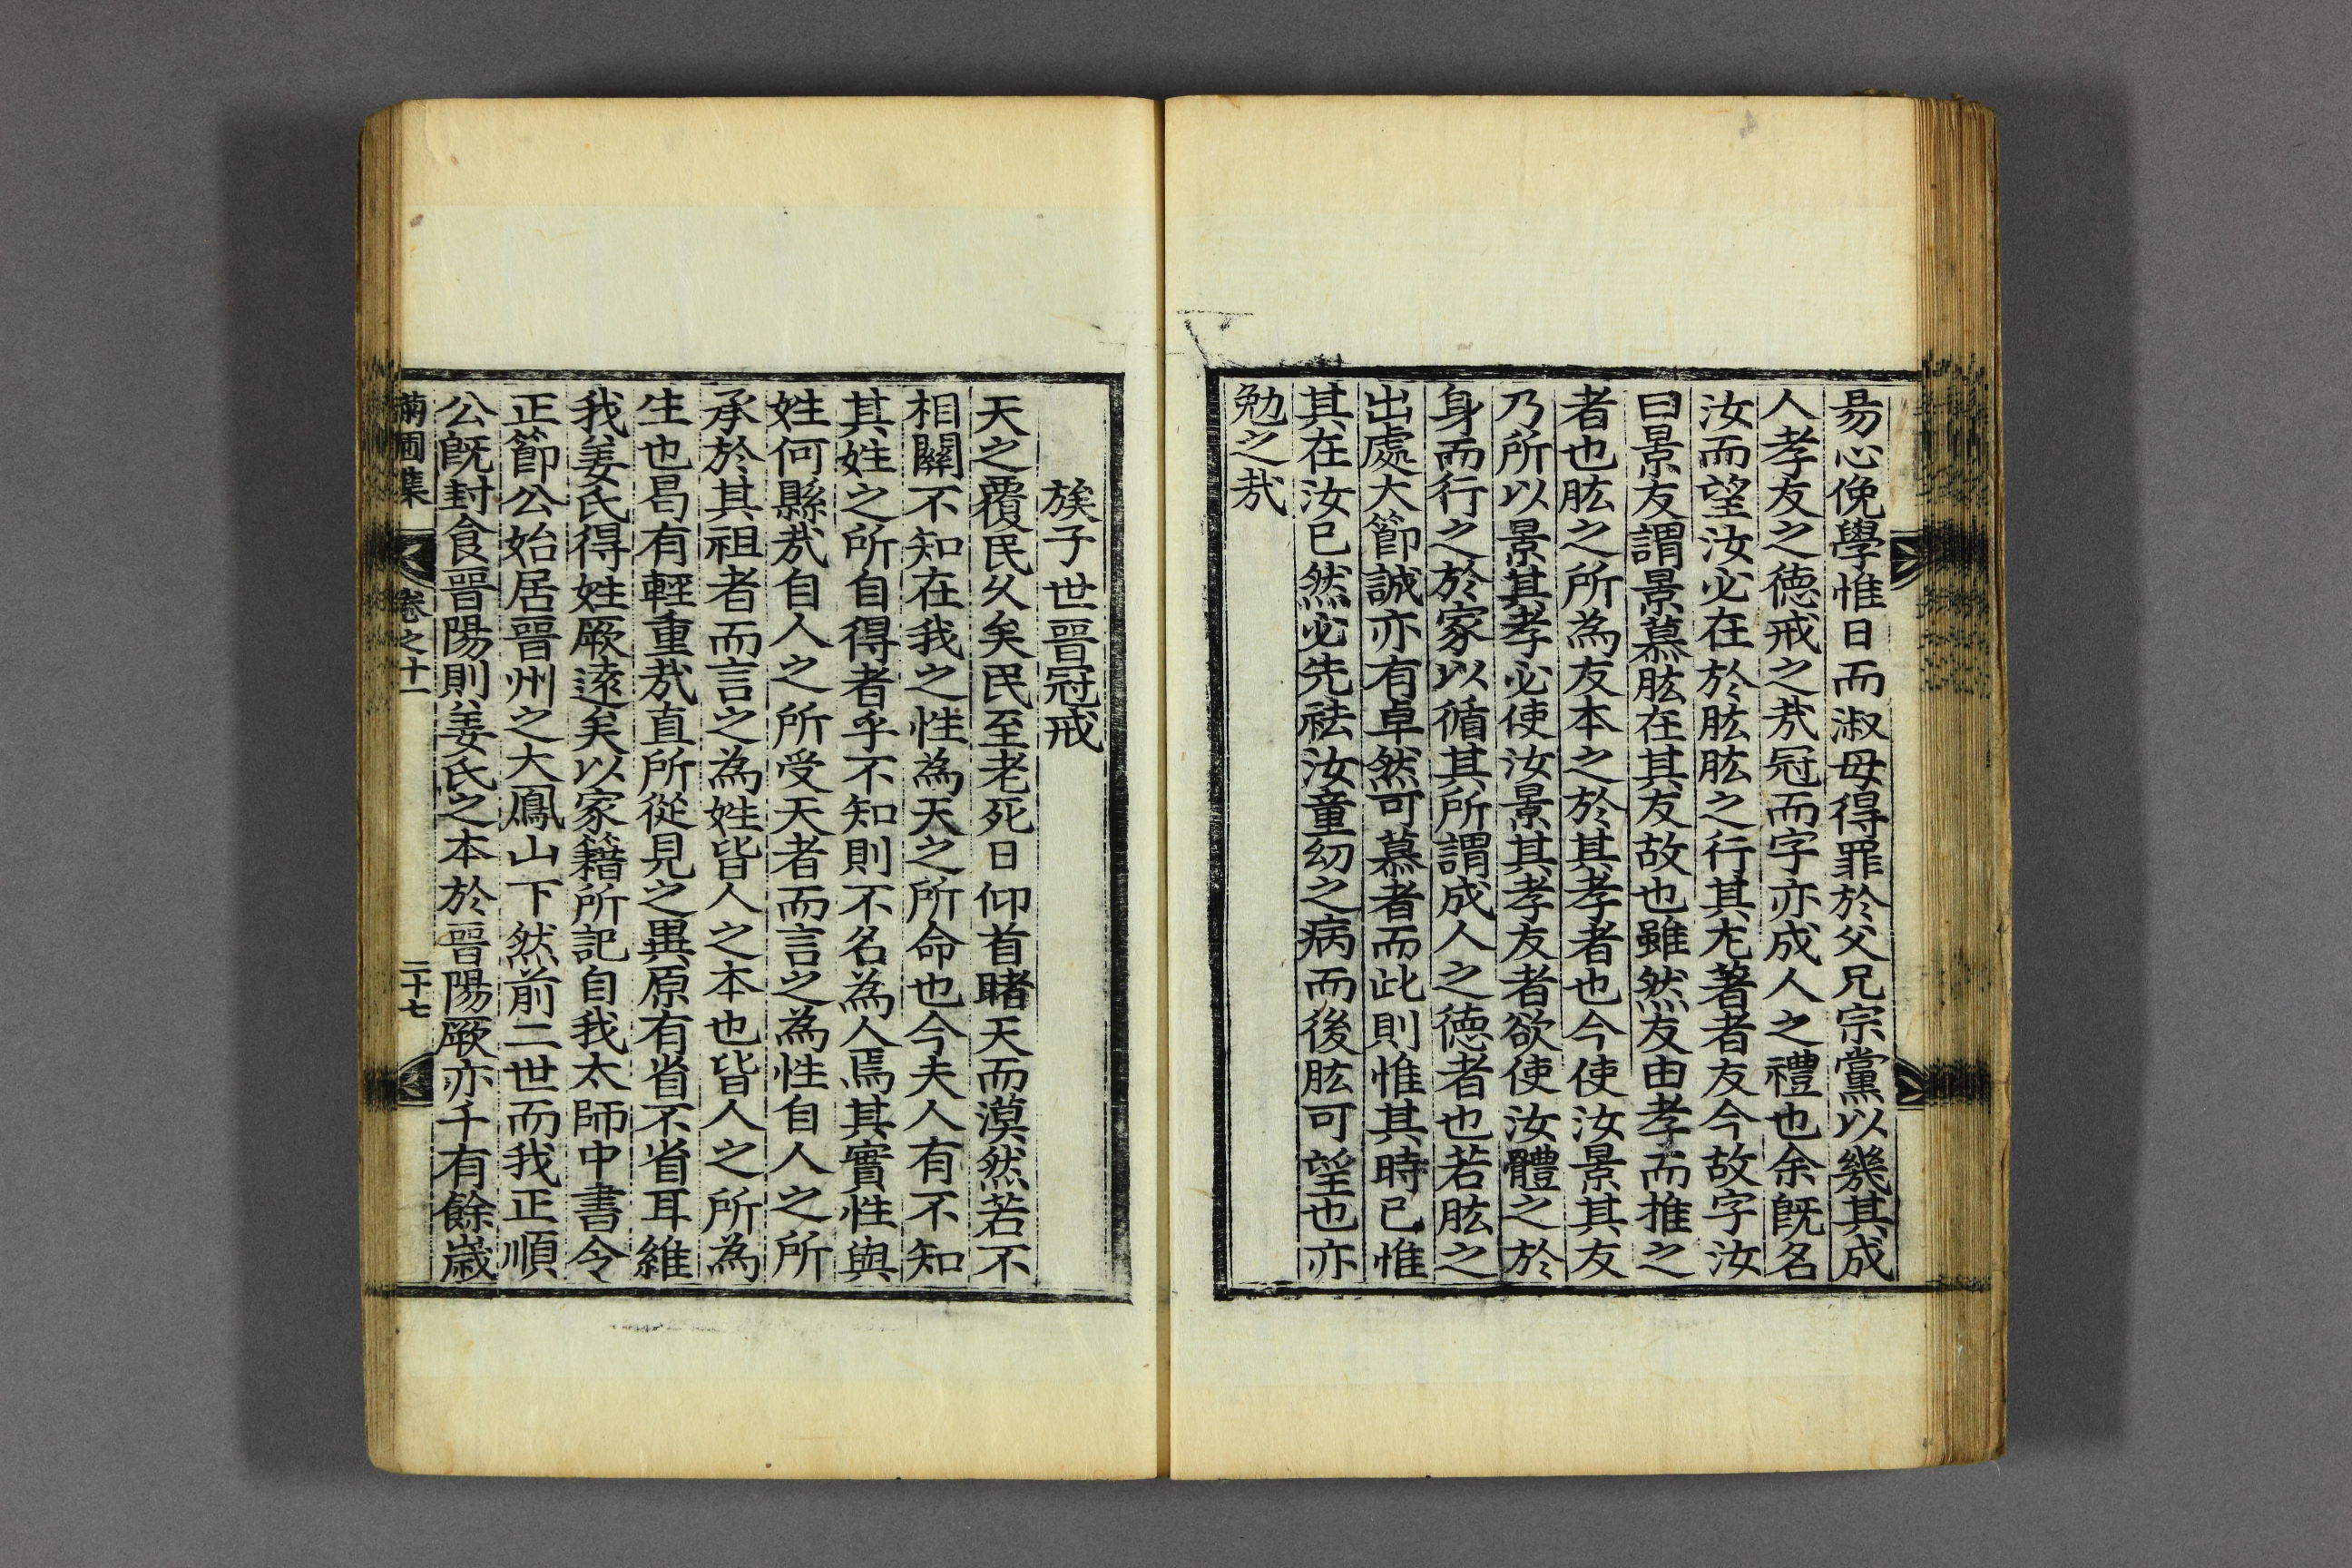 昜心俛學惟日而淑毋得罪於父兄宗黨以幾其成
人孝友之德戒之㢤冠而字亦成人之禮也余旣名
汝而望汝必在於肱肱之行其尤著者友今故字汝
曰景友謂景慕肱在其友故也雖然友由孝而推之
者也肱之所為友本之於其孝者也今使汝景其友
乃所以景其孝必使汝景其孝友者欲使汝體之於
身而行之於家以循其所謂成人之德者也若肱之
出處大節誠亦有卓然可慕者而此則惟其時已惟
其在汝已然必先祛汝童幼之病而後肱可望也亦
勉之㢤
族子世晉冠戒
天之覆民久矣民至老死日仰首睹天而漠然若不
相關不知在我之性為天之所命也今夫人有不知
其姓之所自得者乎不知則不名為人焉其實性與
姓何縣㢤自人之所受天者而言之為性自人之所
承於其祖者而言之為姓皆人之本也皆人之所為
生也曷有輕重㢤直所從見之異原有省不省耳維
我姜氏得姓厥遠矣以家籍所記自我太師中書令
正節公始居晉州之大鳳山下然前二世而我正順
公旣封食晉陽則姜氏之本於晉陽厥亦千有餘歲
菊圃集 卷之十一 二十七